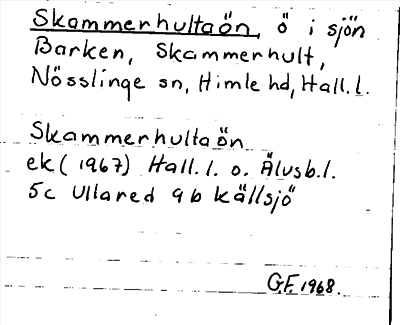 Skammerhultaön, ö i sjön
Barken, Skammerhult,
Nösslinge sn, Himle hd, Hall. l.
Skammerhultaön
ek (1967) Hall. l. o. Älvsb. l.
5c Ullared 9b Källsjö
G.F. 1968.